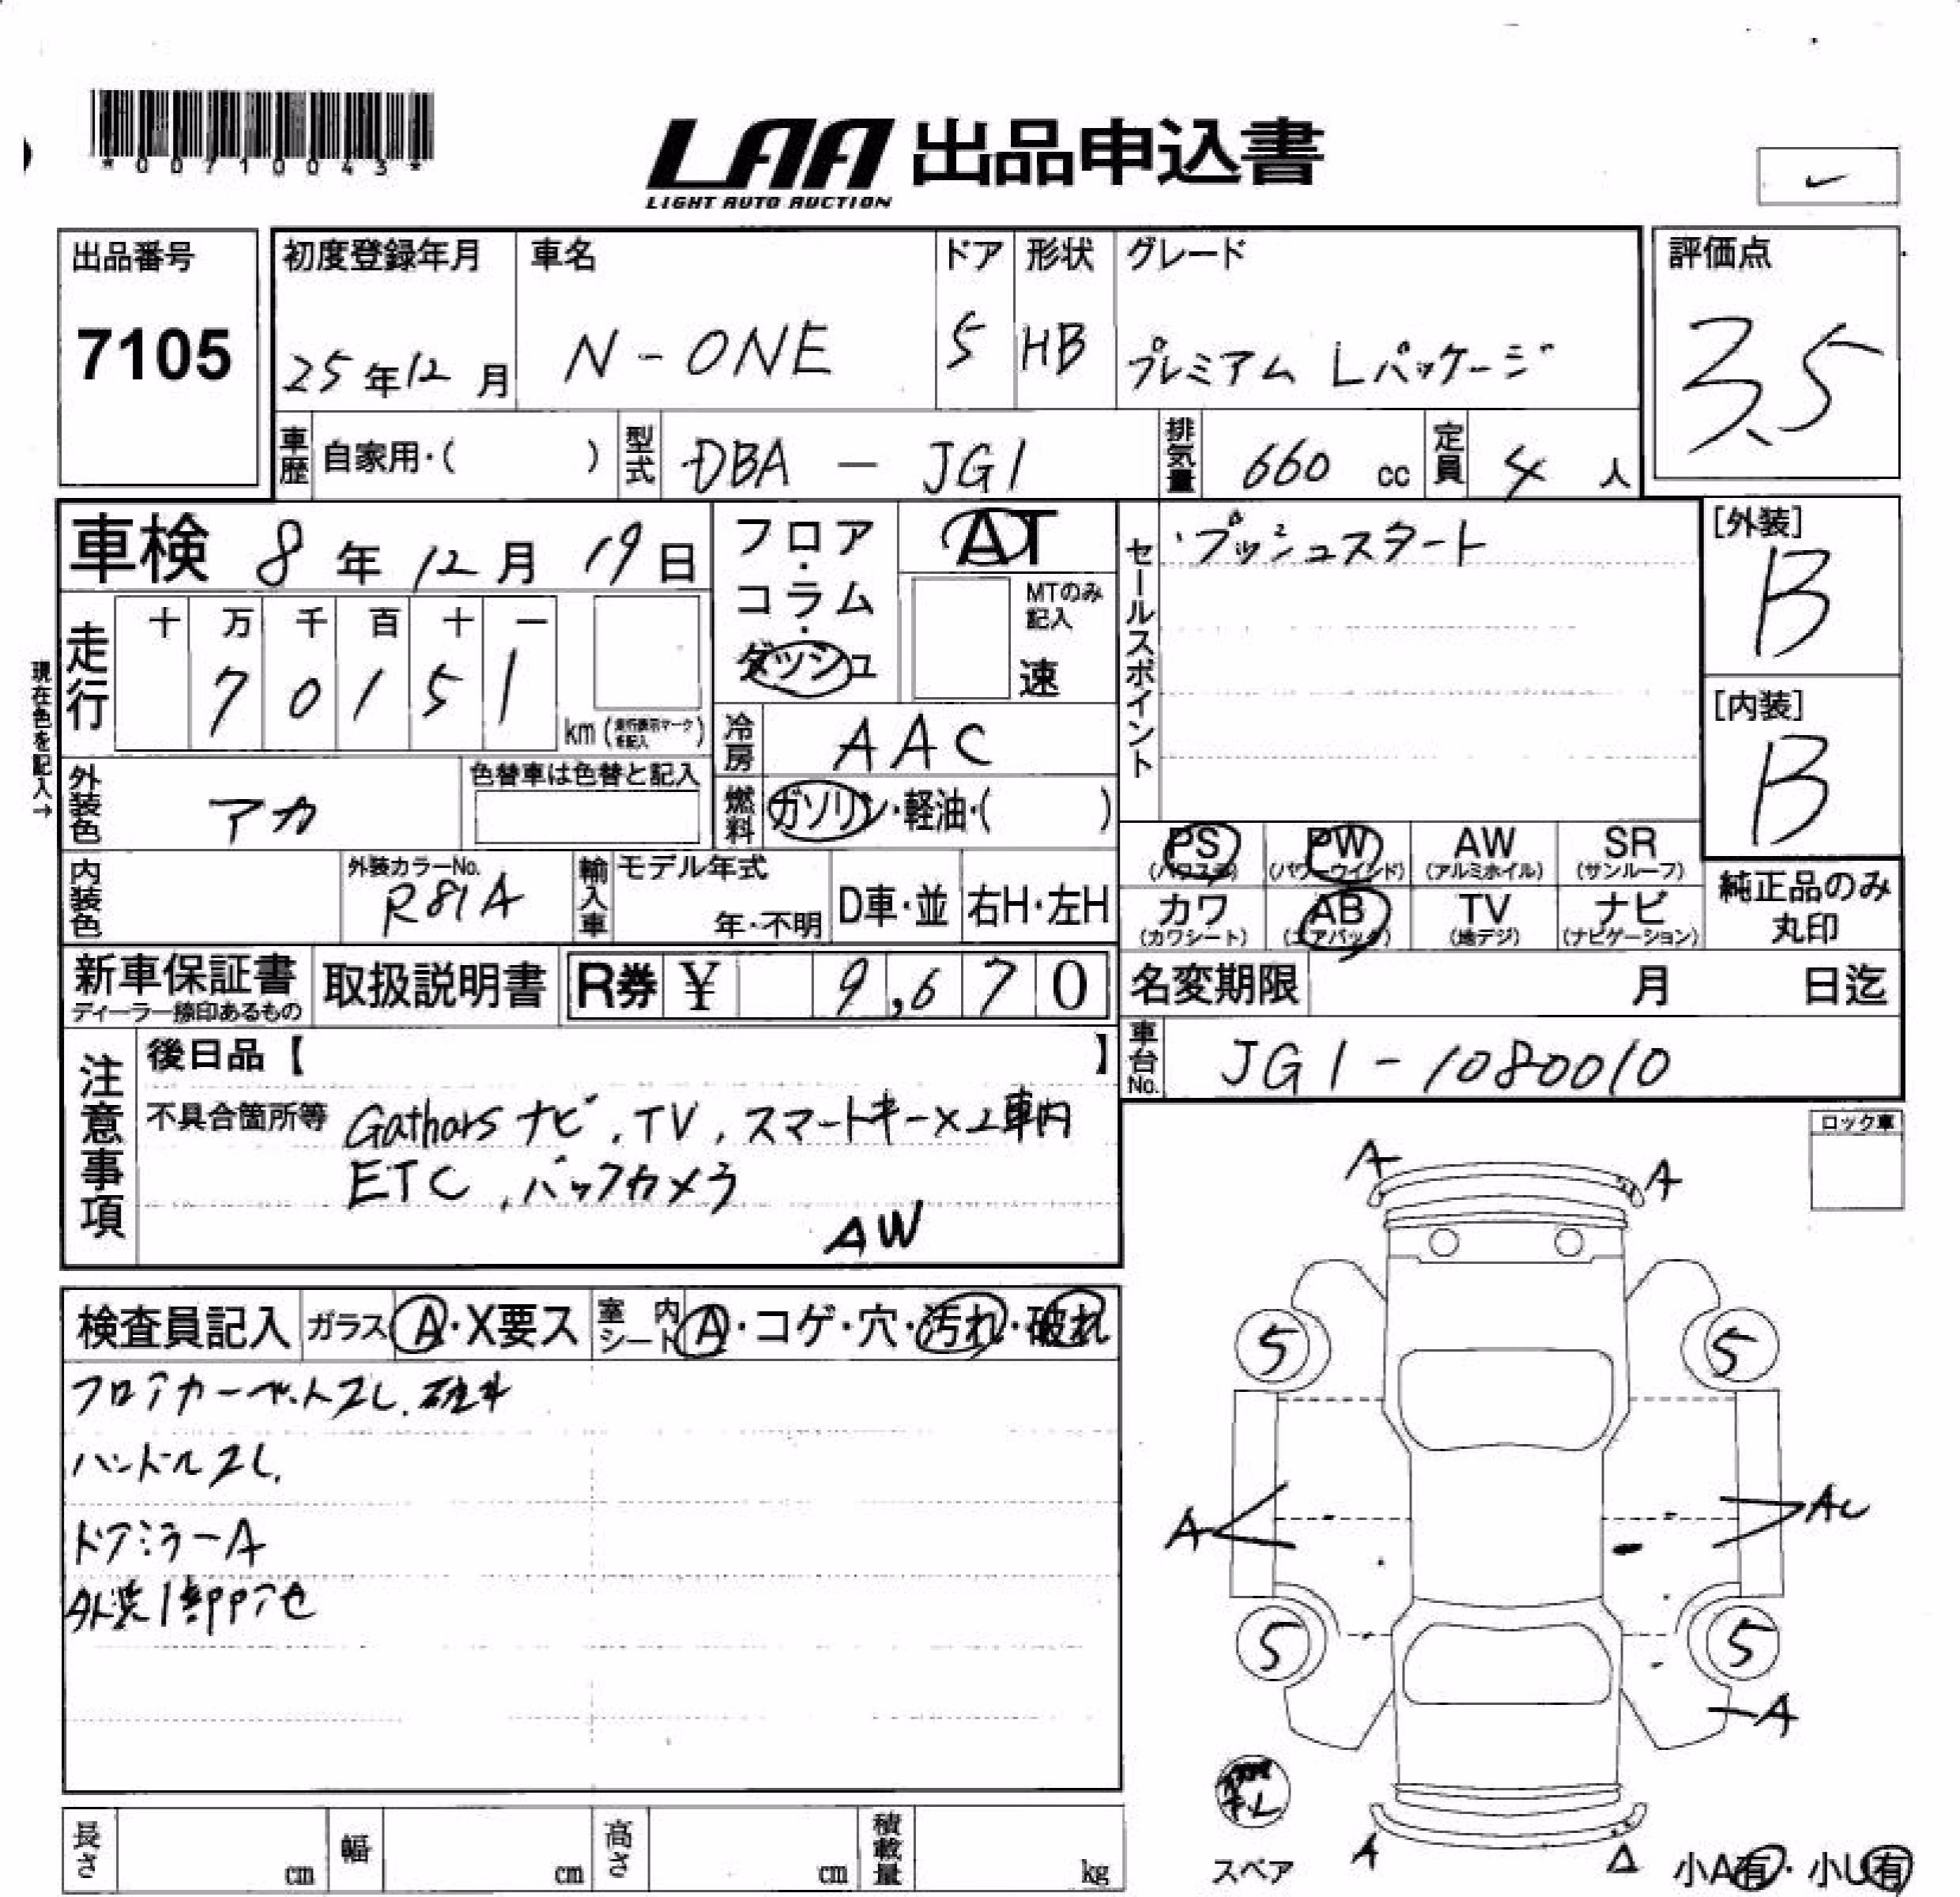 *00710043*
LAA 出品申込書
LIGHT AUTO AUCTION
出品番号
7105
初度登録年月
25年12月
車名
N-ONE
ドア
5
形状
HB
グレード
プレミアム Lパッケージ
評価点
3.5
車歴 自家用・( )
型式 DBA - JG1
排気量 660 cc
定員 4 人
車検 8年12月19日
フロア・コラム・ダッシュ
AT
MTのみ記入
速
セールスポイント
・プッシュスタート
[外装]
B
[内装]
B
現在色を記入→
走行
十 万 千 百 十 一
7 0 1 5 1
km (走行表示マークを記入)
冷房 AAC
燃料 ガソリン・軽油・( )
外装色 アカ
色替車は色替と記入
内装色
外装カラーNo.
R81A
輸入車
モデル年式
年・不明
D車・並
右H・左H
PS (パワステ)
PW (パワーウィンド)
AW (アルミホイル)
SR (サンルーフ)
カワ (カワシート)
AB (エアバック)
TV (地デジ)
ナビ (ナビゲーション)
純正品のみ丸印
新車保証書
ディーラー捺印あるもの
取扱説明書
R券 ¥ 9,670
名変期限 月 日迄
車台No. JG1-1080010
注意事項
後日品【 】
不具合箇所等 Gathars ナビ、TV、スマートキー×2車内
ETC、バックカメラ
AW
ロック車
検査員記入
ガラス A・X要ス
室内シート A・コゲ・穴・汚れ・破れ
フロアカーペットスレ、
ハンドルスレ、
ドアミラーA
外装1部アセ
A A
5 5
A AU
5 5
A
A A
スペア
小A有・小U有
長さ cm
幅 cm
高さ cm
積載量 kg